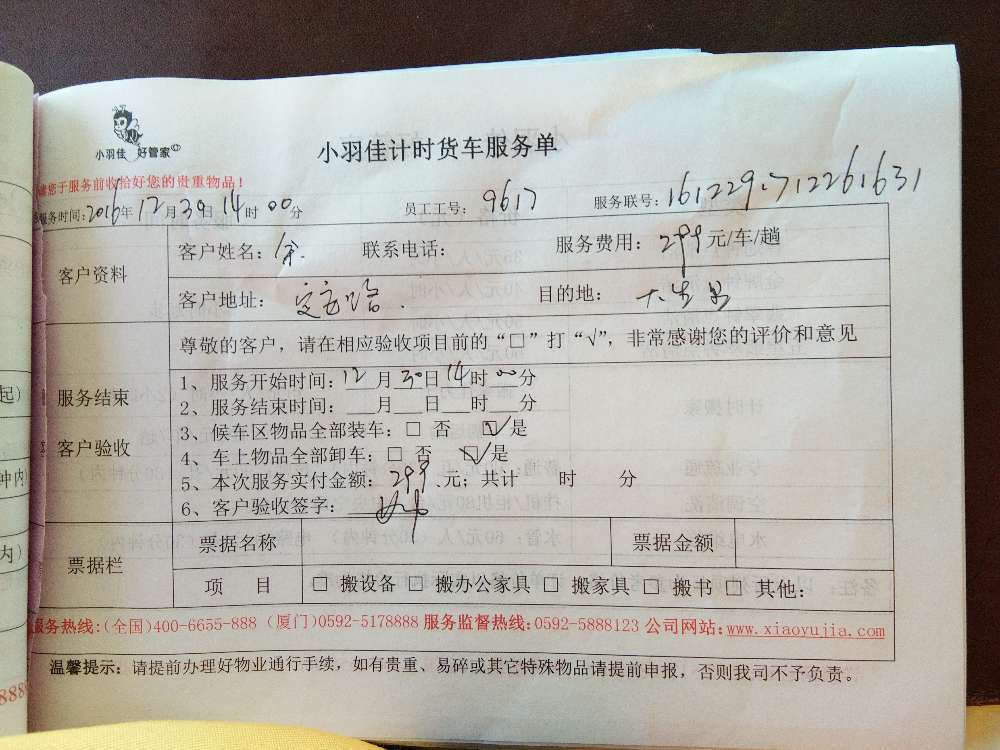 小羽佳 好管家
小羽佳计时货车服务单
请您于服务前收恰好您的贵重物品！
服务时间:2016年12月30日14时00分 员工工号: 9617 服务联号:161229171226163​1
客户资料
客户姓名:余 联系电话: 服务费用:299元/车/趟
客户地址: 定安路 目的地:
尊敬的客户，请在相应验收项目前的“□”打“√”，非常感谢您的评价和意见
服务结束
客户验收
1、服务开始时间:12月30日14时00分
2、服务结束时间:___月___日___时___分
3、候车区物品全部装车:□ 否 ☑是
4、车上物品全部卸车:□ 否 ☑是
5、本次服务实付金额:299元;共计 时 分
6、客户验收签字:
票据栏
票据名称 票据金额
项 目 □ 搬设备 □ 搬办公家具 □ 搬家具 □ 搬书 □ 其他:
服务热线:(全国)400-6655-888 (厦门)0592-5178888 服务监督热线:0592-5888123 公司网站:www.xiaoyujia.com
温馨提示: 请提前办理好物业通行手续，如有贵重、易碎或其它特殊物品请提前申报，否则我司不予负责。